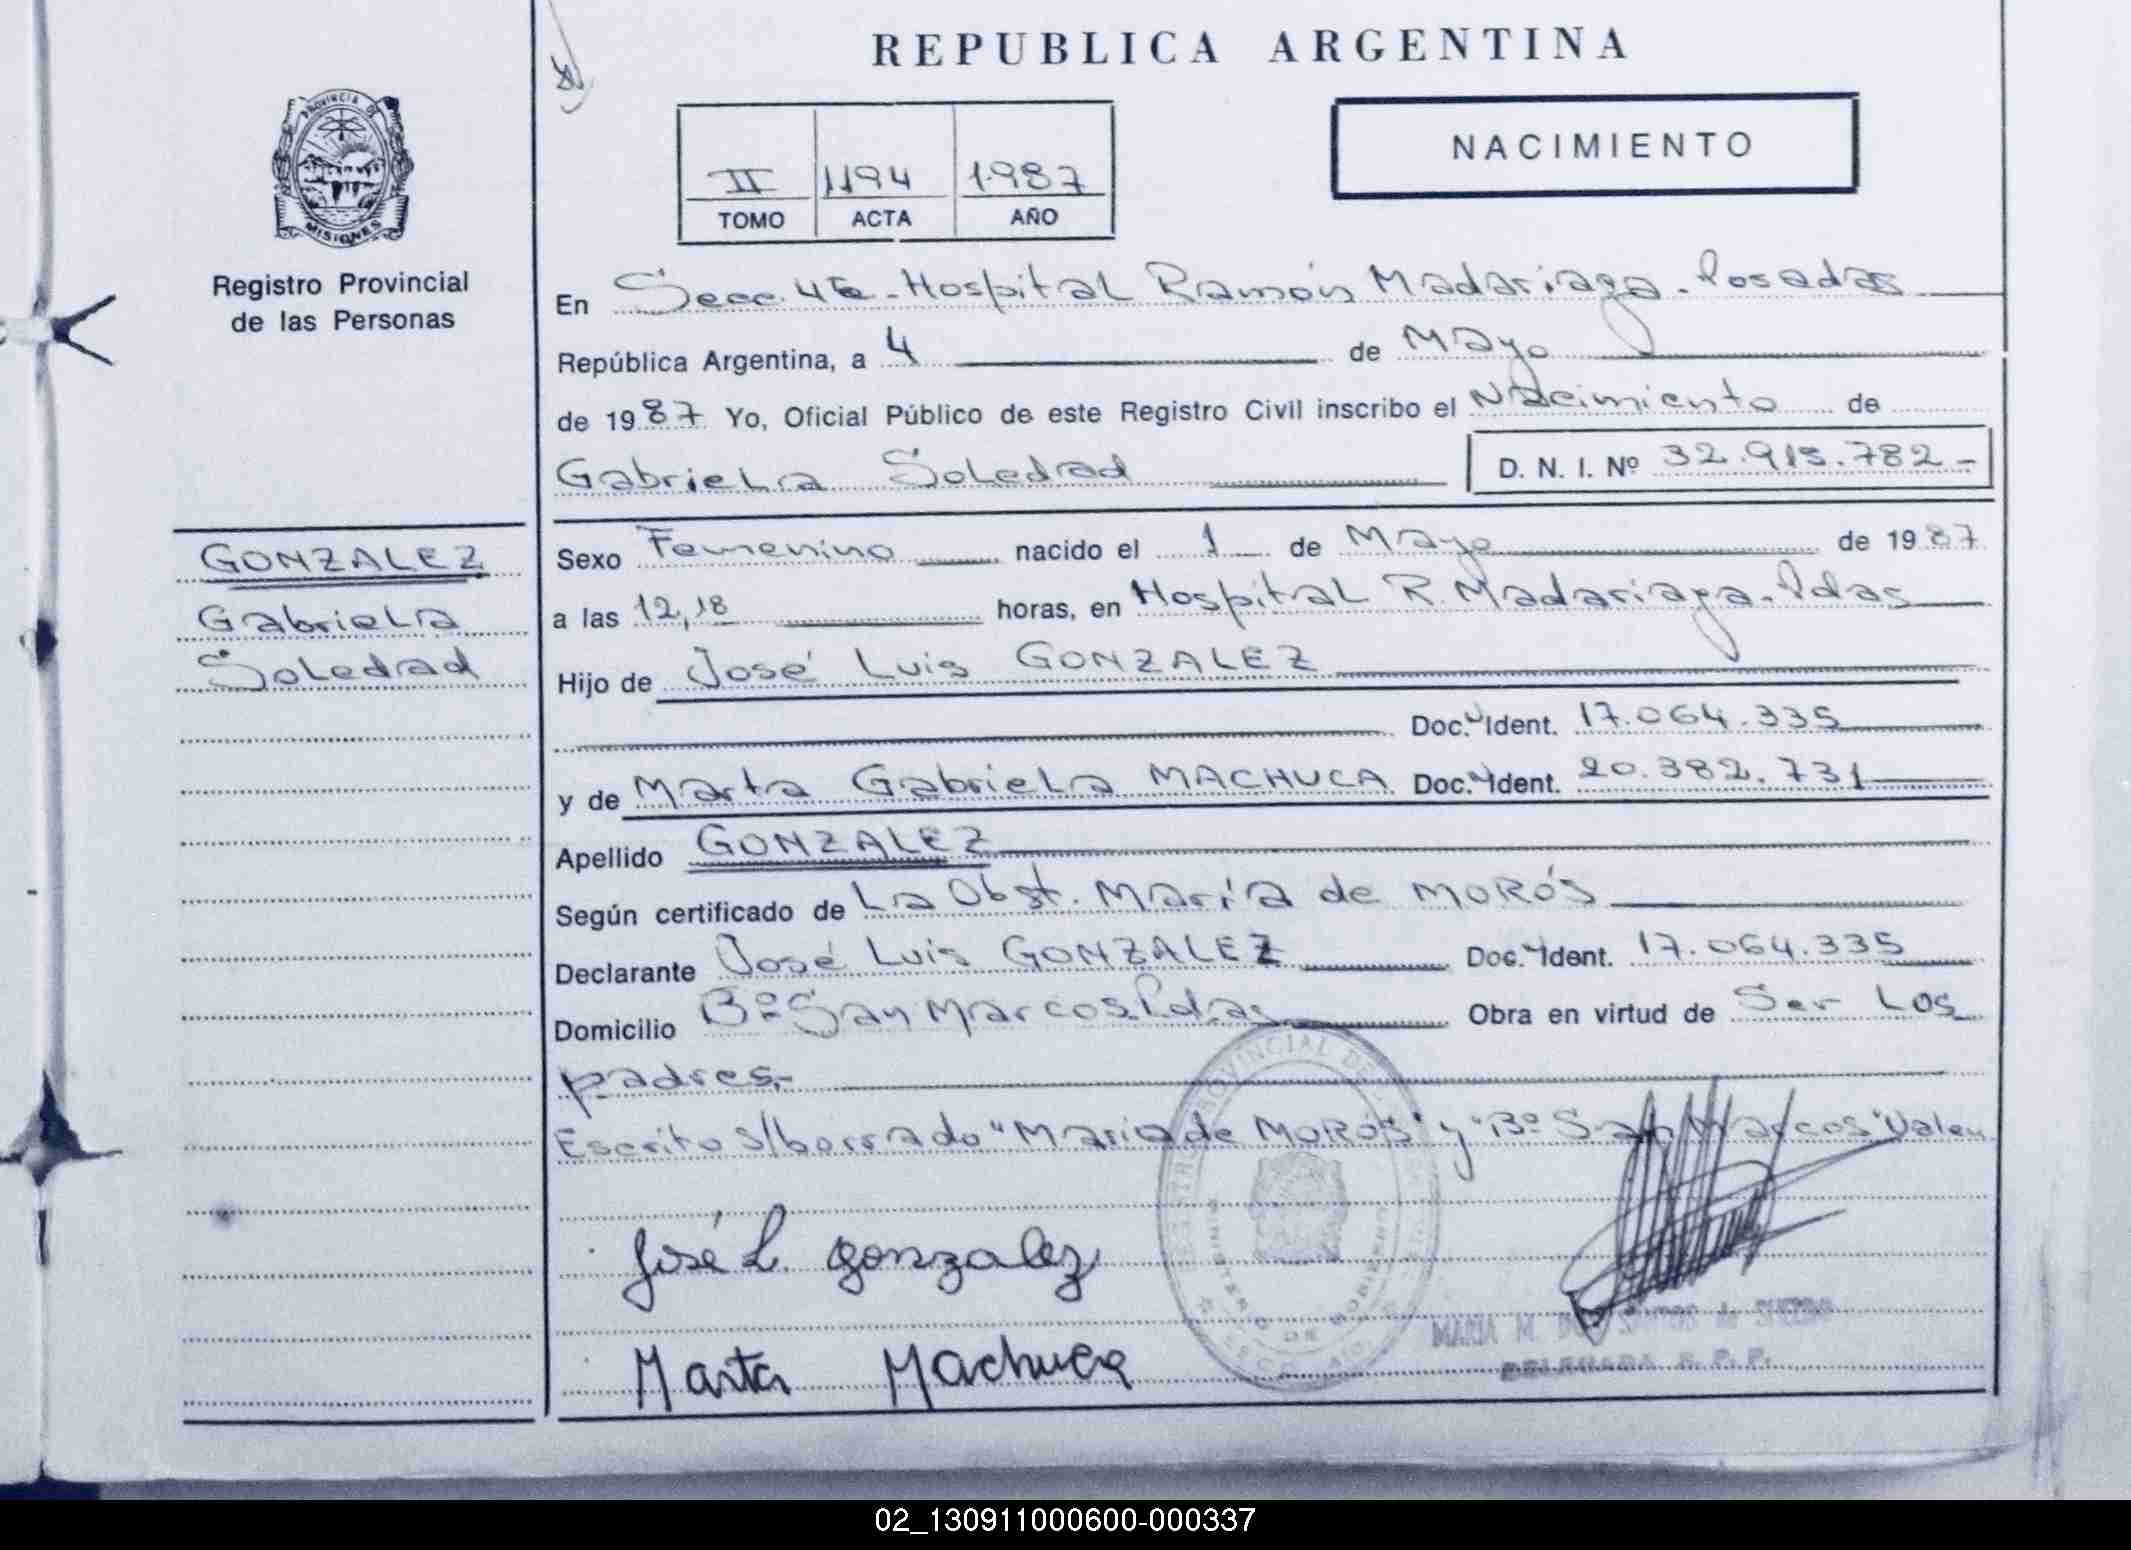 REPUBLICA ARGENTINA
PROVINCIA DE
MISIONES
Registro Provincial
de las Personas
II 1194 1987
TOMO ACTA AÑO
NACIMIENTO
En Secc. 4ta - Hospital Ramón Madariaga - Posadas
República Argentina, a 4 de Mayo
de 1987 Yo, Oficial Público de este Registro Civil inscribo el Nacimiento de
Gabriela Soledad D. N. I. Nº 32.915.782 -
GONZALEZ
Gabriela
Soledad
Sexo Femenino nacido el 1 de Mayo de 1987
a las 12,18 horas, en Hospital R. Madariaga - Pdas
Hijo de José Luis GONZALEZ
Doc. Ident. 17.064.335
y de Marta Gabriela MACHUCA Doc. Ident. 20.382.731
Apellido GONZALEZ
Según certificado de La Obst. María de MORÓS
Declarante José Luis GONZALEZ Doc. Ident. 17.064.335
Domicilio Bº San Marcos. Pdas Obra en virtud de Ser Los
padres.-
Escrito s/borrado "Maria de MORÓS" y "Bº San Marcos" Valen
José L. gonzalez
Marta Machuca
DELEGADA R. P. P.
02_130911000600-000337